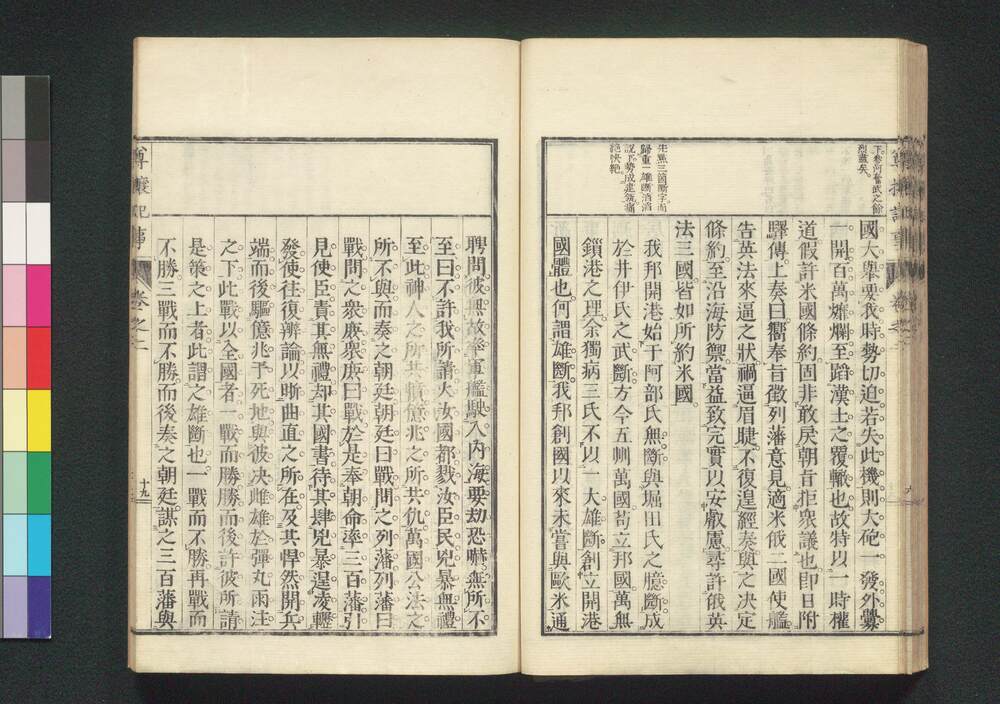 下卷何奮武之餘
烈甚矣
國大擧要我時勢切迫若失此機則大砲一發外釁
一開百萬爛至蹈漢土之覆轍也故特以一時權
道假許米國條約固非敢戾朝旨拒衆議也卽日附
驛傳上奏曰嚮奉旨徵列藩意見適米俄二國使艦
告英法來逼之狀禍逼眉睫不復遑經奏與之決定
條約至沿海防禦當益致完實以安叡慮尋許俄英
法三國皆如所約米國
先點三箇斷字而
歸重一雄斷滔滔
說下勢成建瓴痛
絶快絶
我邦開港始于阿部氏無斷與堀田氏之臆斷成
於井伊氏之武斷方今五洲萬國苟立邦國萬無
鎖港之理余獨病三氏不以一大雄斷創立開港
國體也何謂雄斷我邦創國以來未嘗與歐米通
聘問彼無故率軍艦駛入內海要劫恐嚇無所不
至曰不許我所請火女國都戮汝臣民兇暴無禮
至此神人之所共憤億兆之所共仇萬國公法之
所不與而奏之朝廷朝廷曰戰問之列藩列藩曰
戰問之衆庶衆庶曰戰於是奉朝命率三百藩引
見使臣責其無禮却其國書待其肆兇暴逞凌轢
發使往復辨論以晣曲直之所在及其悍然開兵
端而後驅億兆予死地與彼决雌雄於彈丸雨注
之下此戰以全國者一戰而勝勝而後許彼所請
是策之上者此謂之雄斷也一戰而不勝再戰而
不勝三戰而不勝而後奏之朝廷謀之三百藩與
尊攘紀事
卷之二
十九